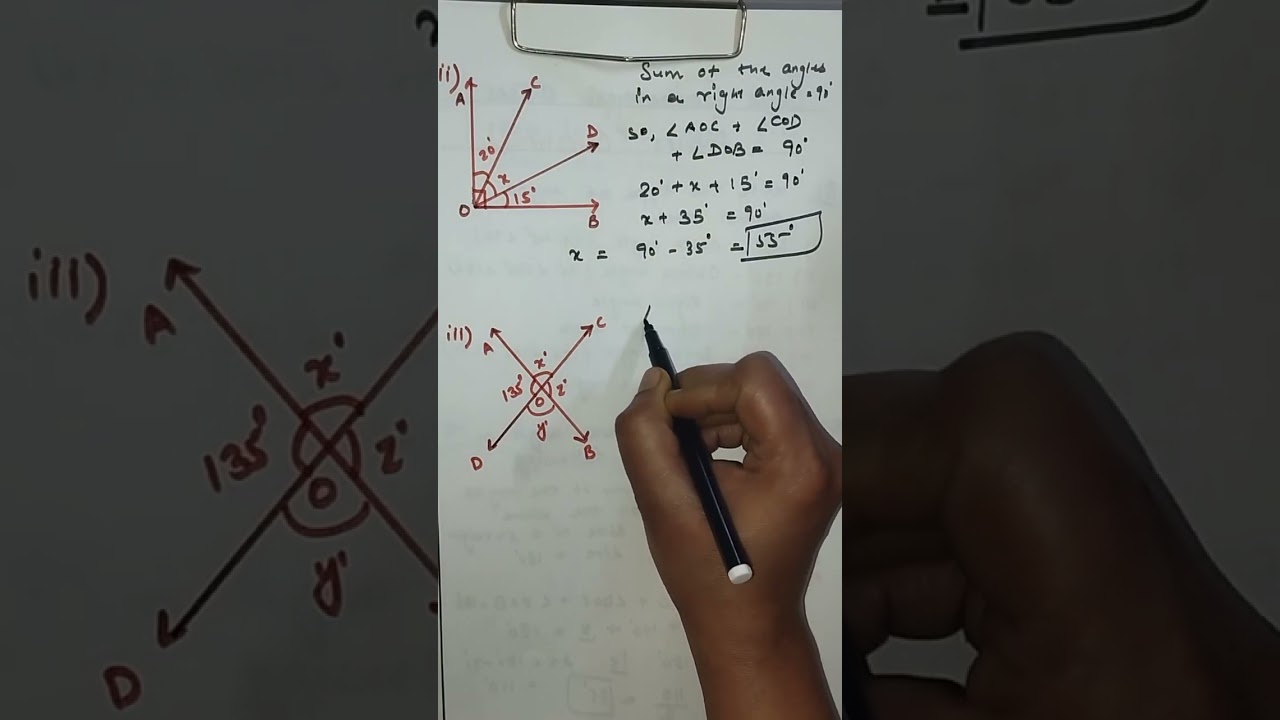 ii)
A
C
D
20°
x
15°
O
B
Sum of the angles
in a right angle = 90°
so, ∠AOC + ∠COD
+ ∠DOB = 90°
20° + x + 15° = 90°
x + 35° = 90°
x = 90° - 35° = 55°
iii)
A
C
x°
135°
z°
O
y°
D
B